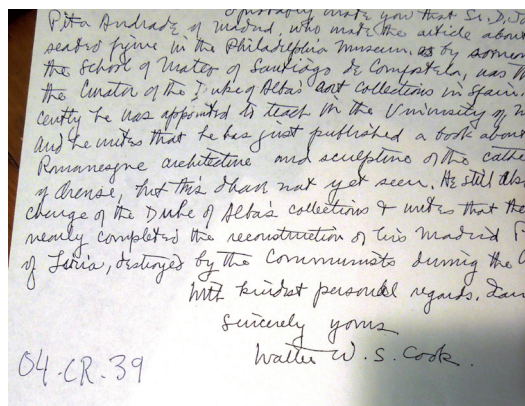 probably write you that Sr. D. Jo
Pita Andrade of Madrid, who wrote the article about
seated figure in the Philadelphia Museum, as by someon
the School of Mateo of Santiago de Compostela, was
the Curator of the Duke of Alba's art collections in Spain.
cently he was appointed to teach in the University of
and he writes that he has just published a book about
Romanesque architecture and sculpture of the cathe
of Orense, but this I have not yet seen. He still also
charge of the Duke of Alba's collections & writes that the
nearly completed the reconstruction of his Madrid P
of Liria, destroyed by the Communists during the C
With kindest personal regards, I am
Sincerely yours
Walter W. S. Cook.
04-CR-39